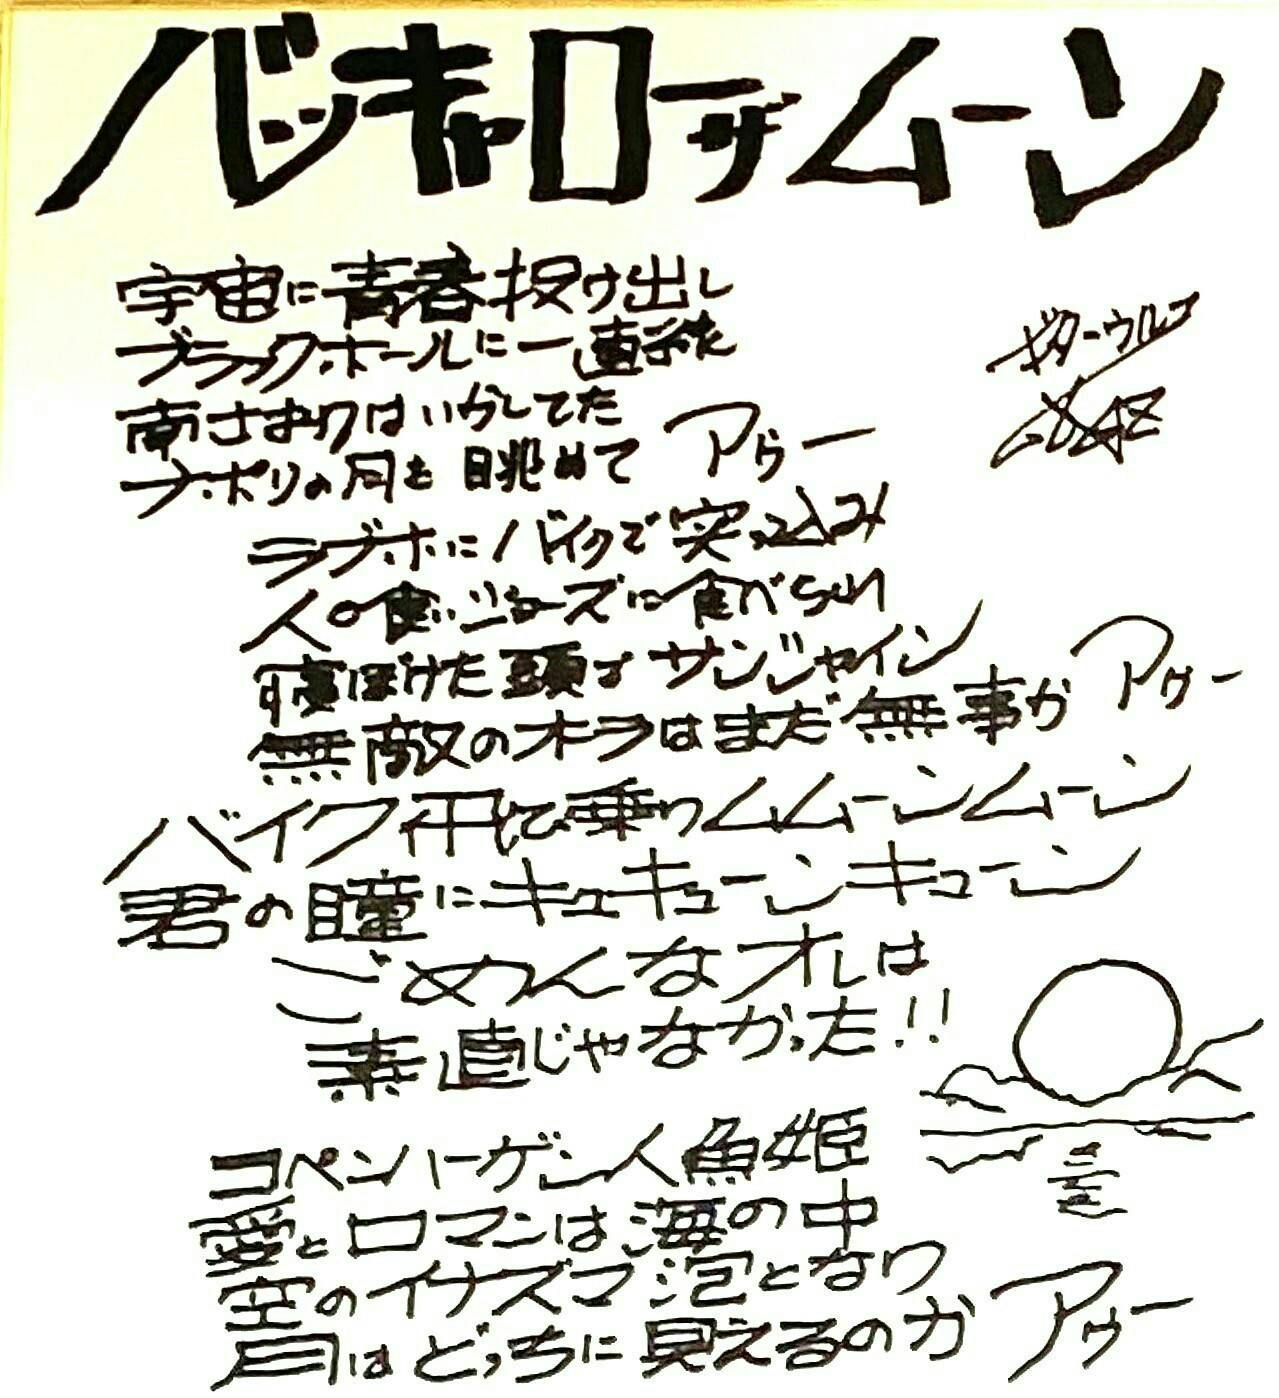 バッキャローザムーン
宇宙に青春投げ出し
ブラックホールに一直線だ
ギターウルフ
南さまりはいかしてた
ナポリの月を眺めて アゥー
ラブホにバイクで突っ込み
人喰いジョーズに食べられ
寝ぼけた頭で サンシャイン
無敵のオラはまだ無事か アゥー
バイク飛び乗りムムーンムーン
君の瞳にキュキューンキューン
ごめんなオレは
素直じゃなかった!!
コペンハーゲン人魚姫
愛とロマンは海の中
空のイナズマ泡となり
月はどっちに見えるのか アゥー